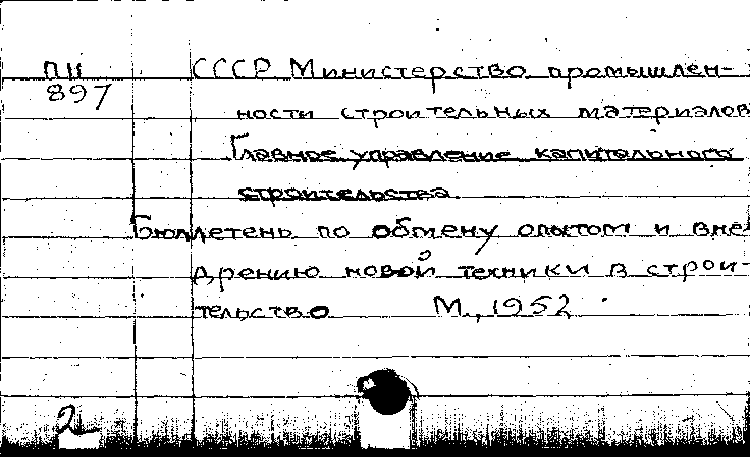 ПII СССР Министерство промышлен-
897
ности строительных материалов
Главное управление капитального
строительства.
Бюллетень по обмену опытом и вне
дрению новой техники в строи-
тельство М., 1952
2